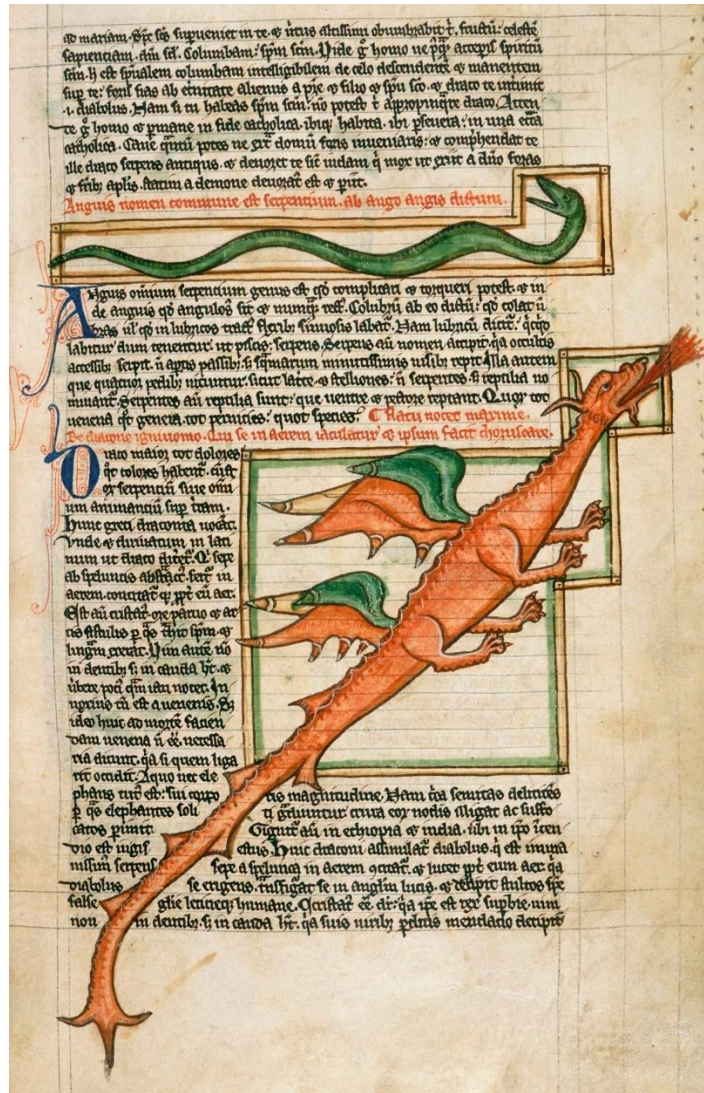 ad mariam. Spc scs superueniet in te. & uirtus altissimi obumbrabit t̄. celeste
sapienciam. dm̄ scl̄. Columbam: spm̄ scm̄. Vide ḡ homo ne accepis spiritū
scm̄. h̄ est spūalem columbam intelligibilem de celo descendente & manentem
sup te: foris fias ab et̄nitate alienus a p̄re & filio & spū sco. & draco te intimit
.i. diabolus. Nam si tu habeas spm̄ scm̄: nō potest t̄ appropinq̄re draco. Atten
te ḡ homo & p̄mane in fide catholica. ibiq; habita. ibi p̄seuera: in una ecc̄a
catholica. Caue q̄ntū potes ne ext̄ domū foris inueniaris: & comp̄hendat te
ille draco serpens antiquus. & deuoret te sic̄ iudam. q̄ mox ut exiit a dn̄o foras
& fr̄ib; ap̄lis. statim a demone deuorat̄ est & p̄iit.
Anguis nomen commune est serpentium. ab ango angis dictum.
Anguis omnium serpencium genus est q̄d complicari & torqueri potest. & in
de anguis q̄d angulos̄ sit & numq̄ rect̄. Colubrū ab eo dictū: q̄d colat ū
bras ul̄ q̄d in lubricos tract̄ flexib; sinuosis labat̄. Nam lubricū dicit̄: q̄cq̄d
labitur dum tenetur. ut piscis: serpens. Serpens aū nomen accipit. q̄a occultis
accessib; serpit. n̄ aptis passib; s; sq̄marum minutissimis nisib; repit. Illa autem
que quatuor pedib; nituntur. sicut lac̄te & stelliones: n̄ serpentes s; reptilia no
minant̄. Serpentes aū reptilia sunt: que uentre & pectore reptant. Quor̄ tot
uenena q̄t genera. tot pernicies: quot species. Flatu nocet marime.
De dracone igniuomo. qui se in aerem iaculatur & ipsum facit choruscare.
Draco maior tot dolores
q̄t colores habent̄. cūct̄
or̄ serpentiū siue omī
um animanciū sup t̄ram.
Hunc greci draconta uocāt.
vnde & diriuatum in lati
num ut draco diceret̄. Q̄ sepe
ab speluncis abstract̄. fert̄ in
aerem. concitat̄ q; ppt̄ eū aer.
Est aū cristat̄. ore paruo & ar
tis fistulis p̄ q̄s t̄hit spm̄. &
lingm̄ exerat. Vim autē nō
in dentib; s; in cauda h̄t. &
ūbere pocī q̄m ictu nocet. In
noxius tn̄ est a uenenis. S;
ideo huic ad mortē facien
dam uenena n̄ ēē. necessa
ria dicunt. q̄a si quem liga
rit occidit. A quo nec ele
phans tut̄ est: sui corpo
ris magnitudine. Nam c̄ca semitas delitēcēs
p̄ q̄s elephantes soli
ti ḡdiuntur crura eor̄ nodis illigat ac suffo
catos p̄imit.
Gignit̄ aū in ethiopia & india. ubi in ip̄o īcen
dio est iugis
estus. Huic draconi assimilat̄ diabolus. q̄ est inma
nissim̄ serpens
sepe a spelunca in aerem ꝯcitat̄. & lucet ppt̄ eum aer. q̄a
diabolus
se erigens. t̄nsfigat̄ se in angl̄m lucis. & decipit stultos spe
false
glīe leticieq; humane. Cristat̄ ēē dr̄. q̄a ip̄e est rex supbie. uim
non
in dentib; s; in cauda h̄t. q̄a suis uirib; p̄ditis mendacio decipit